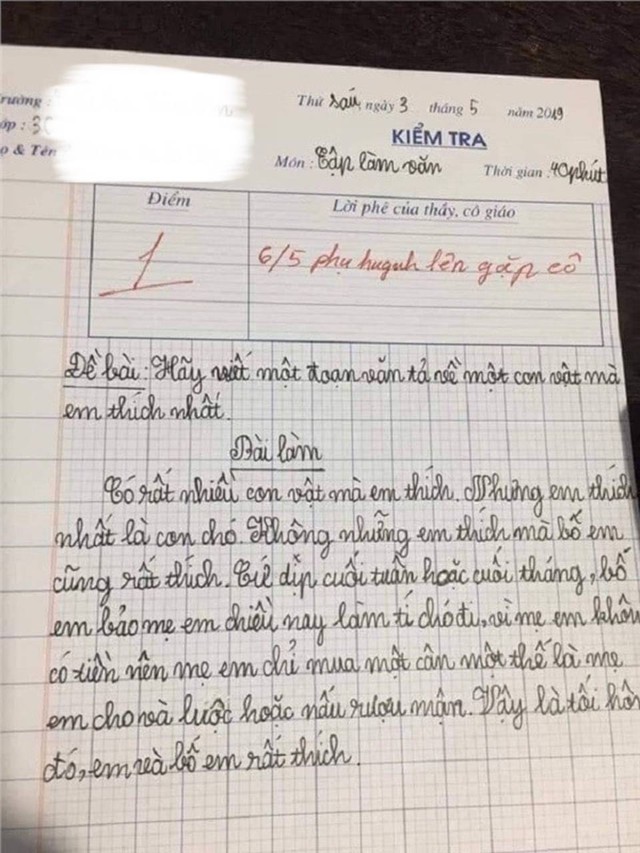 Trường :
Thứ sáu, ngày 3 tháng 5 năm 2019
Lớp : 3C
KIỂM TRA
Họ & Tên
Môn : Tập làm văn Thời gian : 40 phút
Điểm
Lời phê của thầy, cô giáo
1
6/5 phụ huynh lên gặp cô
Đề bài: Hãy viết một đoạn văn tả về một con vật mà
em thích nhất.
Bài làm
Có rất nhiều con vật mà em thích. Nhưng em thích
nhất là con chó. Không những em thích mà bố em
cũng rất thích. Cứ dịp cuối tuần hoặc cuối tháng, bố
em bảo mẹ em chiều nay làm tí chó đi, vì mẹ em khôn
có tiền nên mẹ em chỉ mua một cân một thế là mẹ
em cho và luộc hoặc nấu rượu mận. Vậy là tối hôm
đó, em và bố em rất thích.